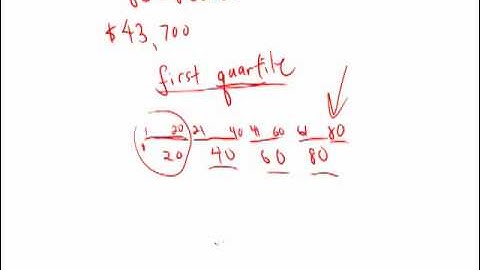 $43,700
first quartile
1 20 21 40 41 60 61 80
20 40 60 80